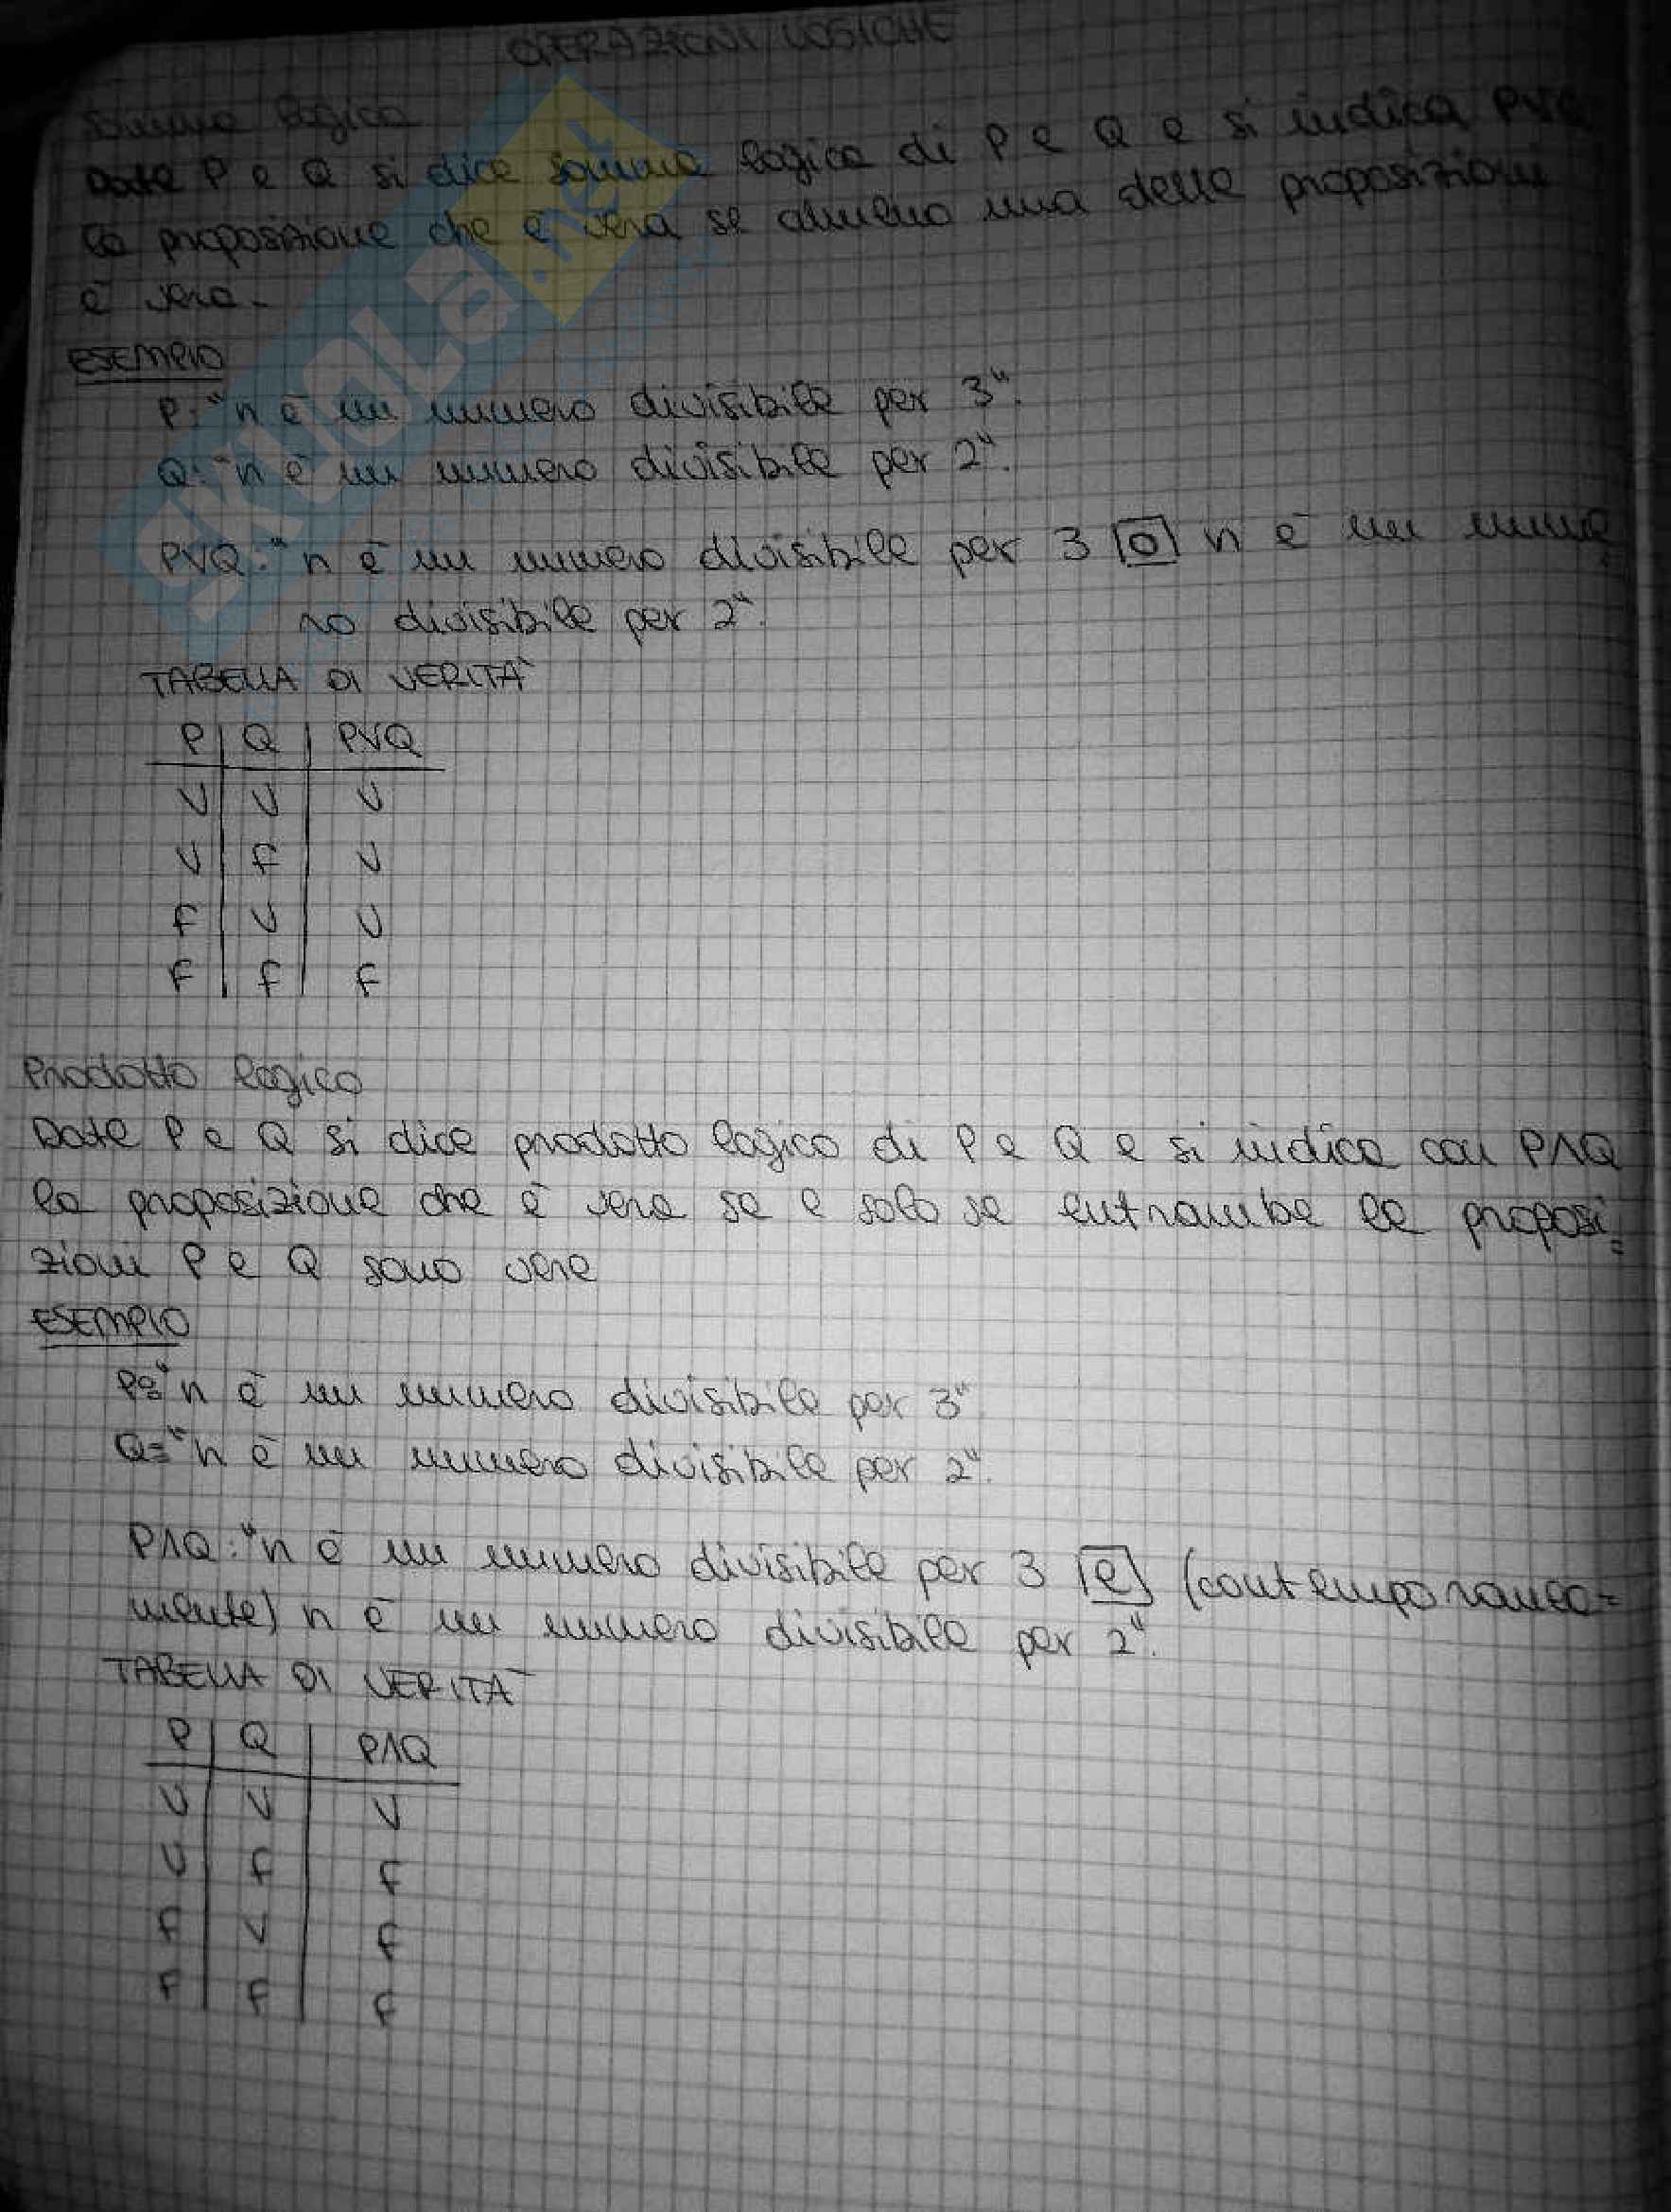 OPERAZIONI LOGICHE
Somma logica
Date P e Q si dice somma logica di P e Q e si indica PVQ
la proposizione che è vera se almeno una delle proposizioni
è vera.
ESEMPIO
P: "n è un numero divisibile per 3".
Q: "n è un numero divisibile per 2".
PVQ: "n è un numero divisibile per 3 o n è un nume
ro divisibile per 2".
TABELLA DI VERITÀ
P Q PVQ
V V V
V F V
F V V
F F F
Prodotto logico
Date P e Q si dice prodotto logico di P e Q e si indica con PΛQ
la proposizione che è vera se e solo se entrambe le proposi=
zioni P e Q sono vere
ESEMPIO
P= "n è un numero divisibile per 3".
Q= "n è un numero divisibile per 2".
PΛQ: "n è un numero divisibile per 3 e (contemporanea=
mente) n è un numero divisibile per 2".
TABELLA DI VERITÀ
P Q PΛQ
V V V
V F F
F V F
F F F
SKUOLa.net